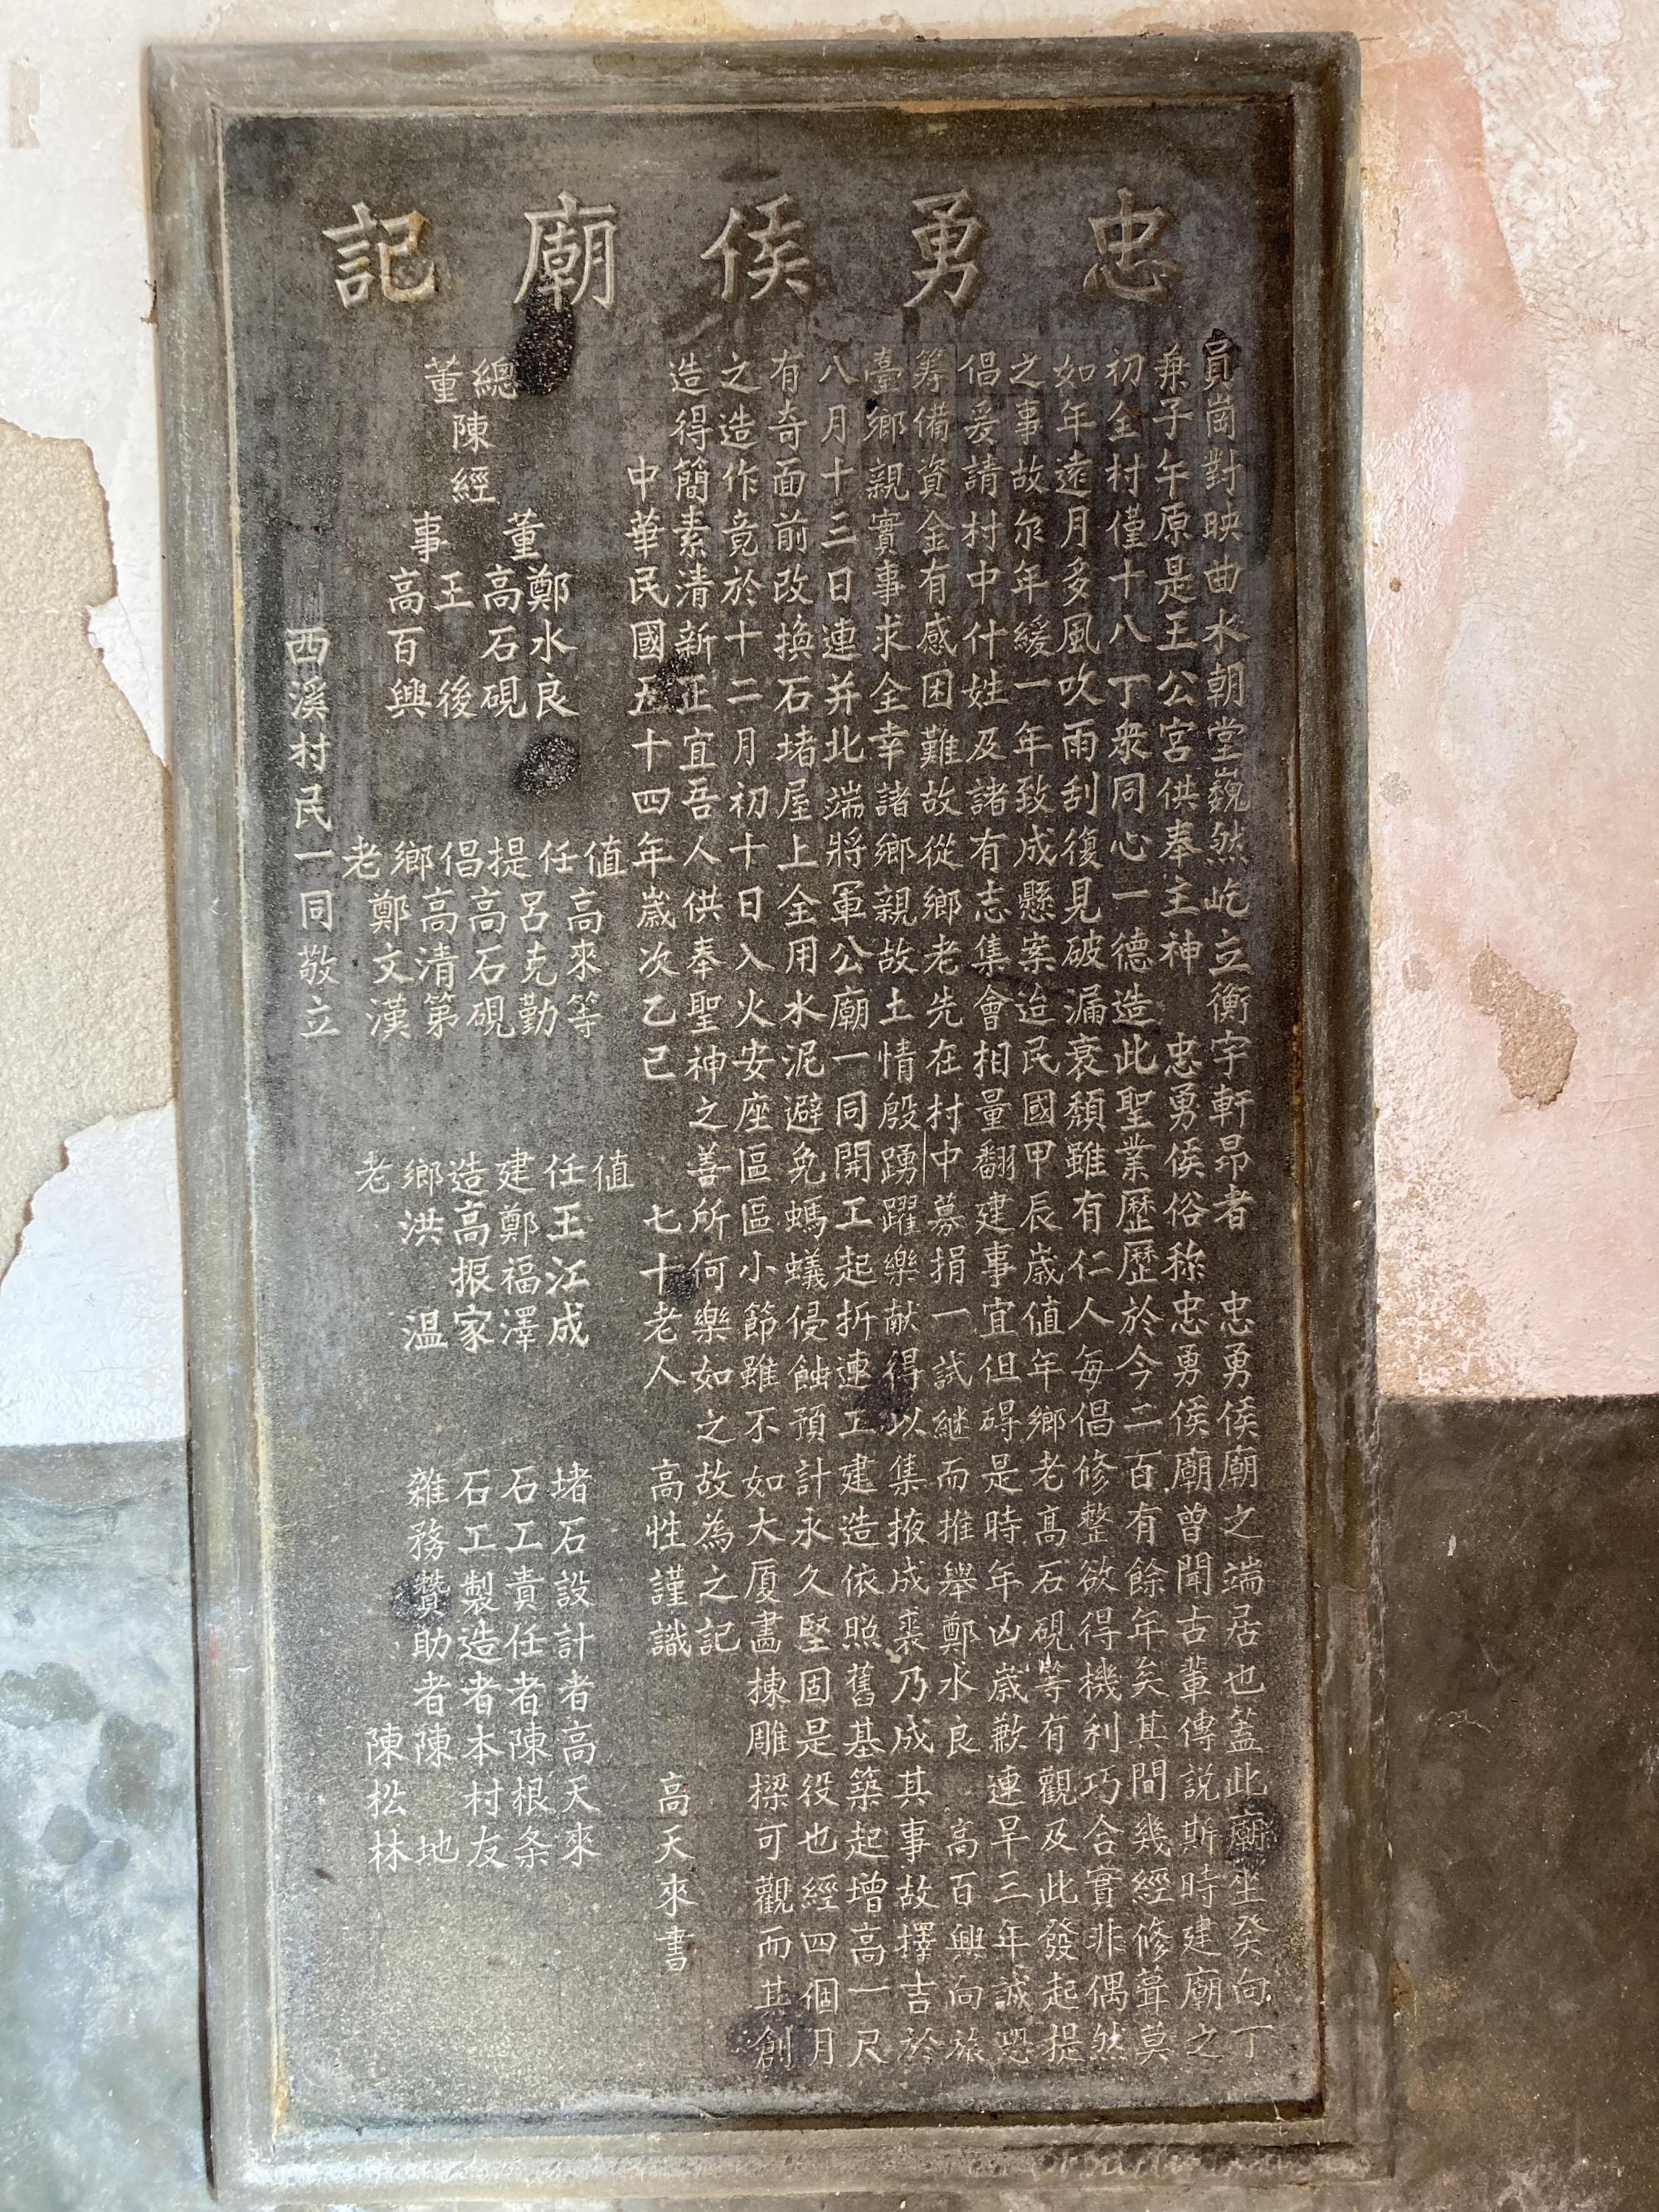 忠勇侯廟記
員崗對映曲水朝堂巍然屹立衡宇軒昂者　忠勇侯廟之端居也蓋此廟坐癸向丁
兼子午原是王公宮供奉主神　忠勇侯俗称忠勇侯廟曾聞古輩傳説斯時建廟之
初全村僅十八丁衆同心一德造此聖業歷歷於今二百有餘年矣其間幾經修葺莫
如年遠月多風吹雨刮復見破漏衰頹雖有仁人每倡修整欲得機利巧合實非偶然
之事故尔年緩一年致成懸案迨民國甲辰歲值年鄉老高石硯等有觀及此發起提
倡爰請村中什姓及諸有志集會相量翻建事宜但碍是時年凶歲歉連旱三年誠恐
筹備資金有感困難故從鄉老先在村中募捐一試継而推舉鄭水良　高百興向旅
臺鄉親實事求全幸諸鄉親故土情殷踴躍樂献得以集掖成裘乃成其事故擇吉於
八月十三日連并北端將軍公廟一同開工起折連工建造依照舊基築起增高一尺
有奇面前改換石堵屋上全用水泥避免螞蟻侵蝕預計永久堅固是役也經四個月
之造作竟於十二月初十日入火安座區區小節雖不如大厦畫揀雕樑可觀而其創
造得簡素清新正宜吾人供奉聖神之善所何樂如之故為之記
中華民國五十四年歲次乙巳　七十老人　高性謹識　高天來書
值任　高來等
提倡　呂克勤
鄉老　高石硯
高清第
鄭文漢
值任　王江成
建造　鄭福澤
鄉老　高振家
洪温
堵石設計者高天來
石工責任者陳根条
石工製造者本村友
雜務贊助者陳地
陳松林
總董　陳經
董事　鄭水良
高石硯
王後
高百興
西溪村民一同敬立